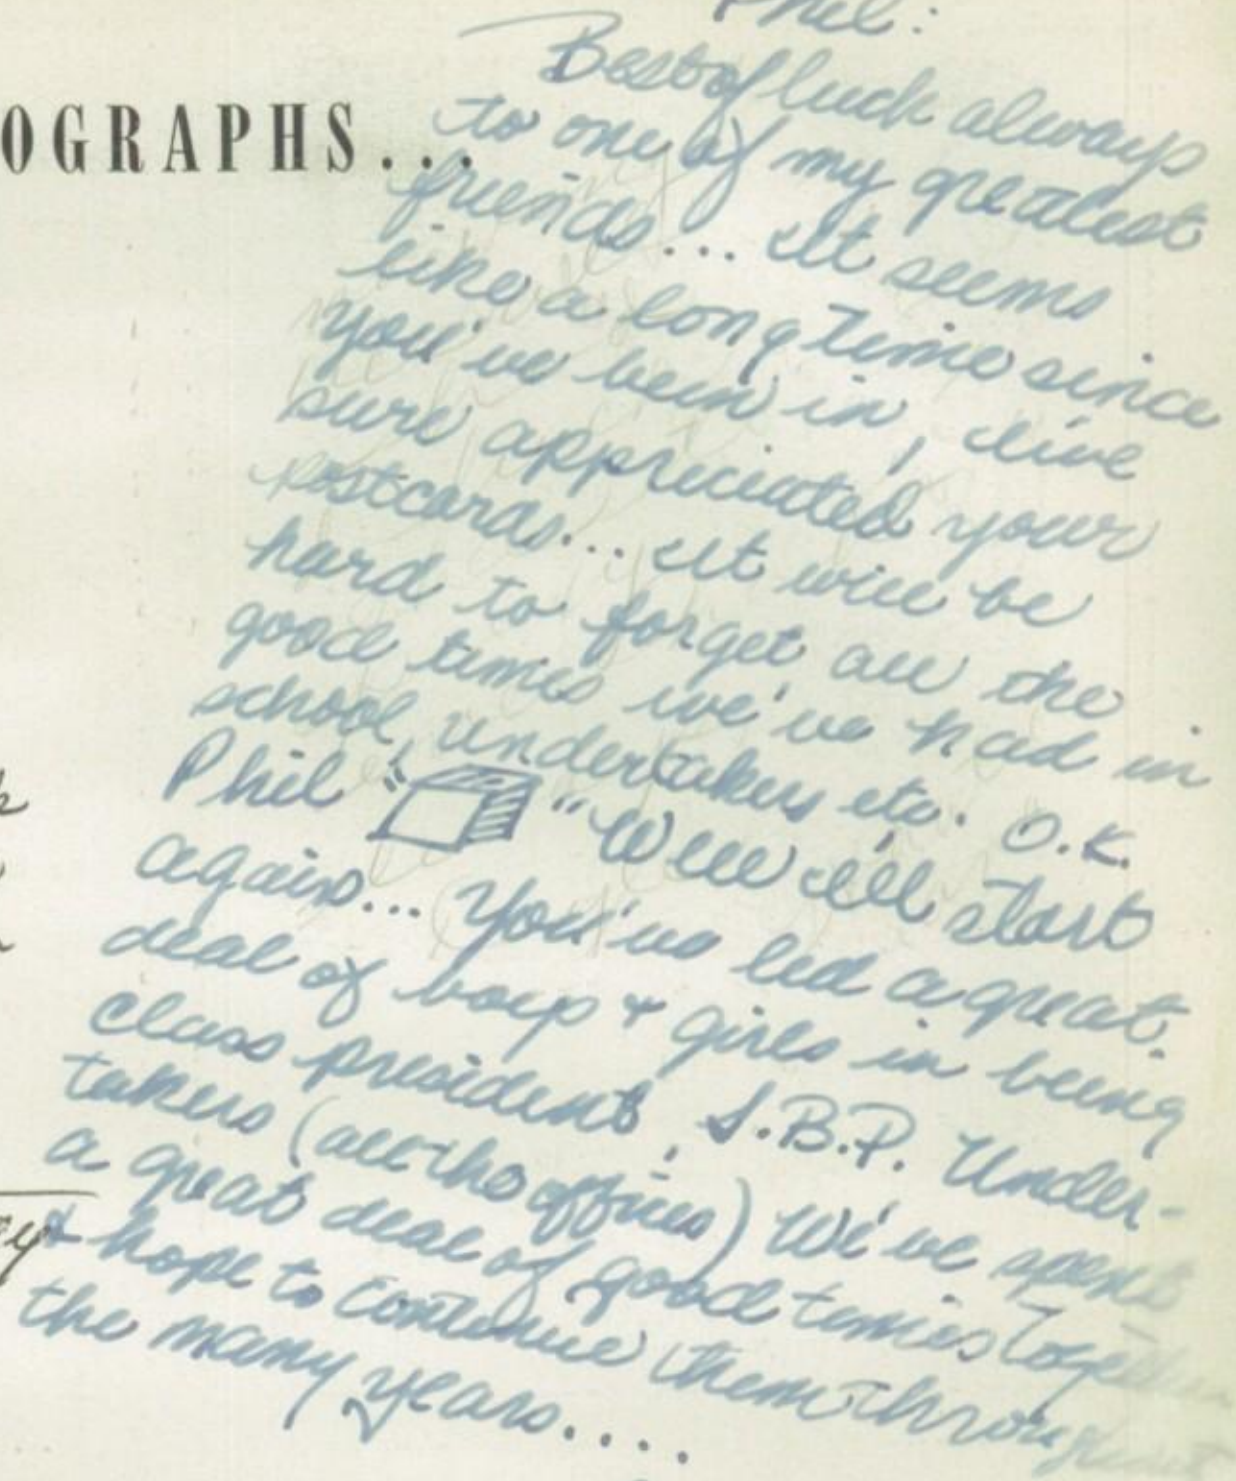 OGRAPHS...
Phil:
Best of luck always
to one of my greatest
friends... It seems
like a long time since
you've been in, live
sure appreciated your
postcards... It will be
hard to forget all the
good times we've had in
school, undertakers etc. O.K.
Phil " " Well I'll start
again... You've led a great
deal of boys & girls in being
class president, S.B.P. Under-
takers (all the offices) We've spent
a great deal of good times together
& hope to continue them throughout
the many years....